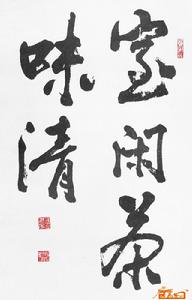 室闲茶
味清